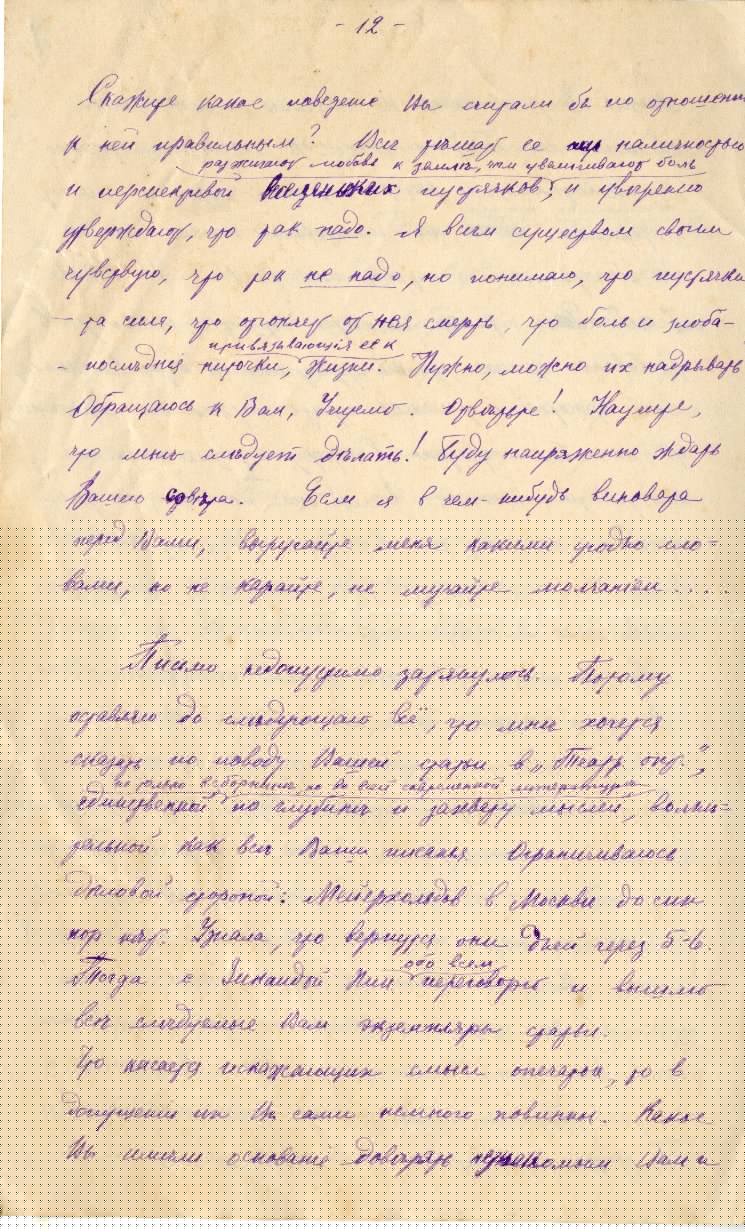 - 12 -
Скажите какое поведение Вы считали бы по отношенію
к ней правильным? Всѣ тѣшат ее наличностью
разжигают любовь к землѣ, чѣм увеличивают боль
и перспективой всяческих пустячков, и увѣренно
утверждают, что так надо. Я всѣм существом своим
чувствую, что так не надо, но понимаю, что пустячки
— та сила, что отгоняет от нея смерть, что боль и злоба –
привязывающія ее к
- послѣднія ниточки, жизни. Нужно, можно их надрывать
Обращаюсь к Вам, Учитель. Отвѣтьте! Научите,
что мнѣ слѣдует дѣлать! Буду напряженно ждать
Вашего совѣта. Если я в чем-нибудь виновата
перед Вами, выругайте меня какими угодно сло=
вами, но не карайте, не мучайте молчаніем . . . .
Письмо недопустимо затянулось. Потому
оставляю до слѣдующаго всё, что мнѣ хочется
сказать по поводу Вашей статьи в „Театр. окт.",
не только в сборникѣ, но во всей современной литературѣ
единственной по глубинѣ и захвату мыслей, волни=
тельной как всѣ Ваши писанья. Ограничиваюсь
дѣловой стороной: Мейерхольдов в Москвѣ до сих
пор нѣт. Узнала, что вернутся они дней через 5-6.
обо всем
Тогда с Зинаидой Ник переговорю и вышлю
всѣ слѣдуемые Вам экземпляры статьи.
Что касается искажающих смысл опечаток, то в
допущеніи их Вы сами немного повинны. Какое
Вы имѣли основаніе довѣрять незнакомым Вам и